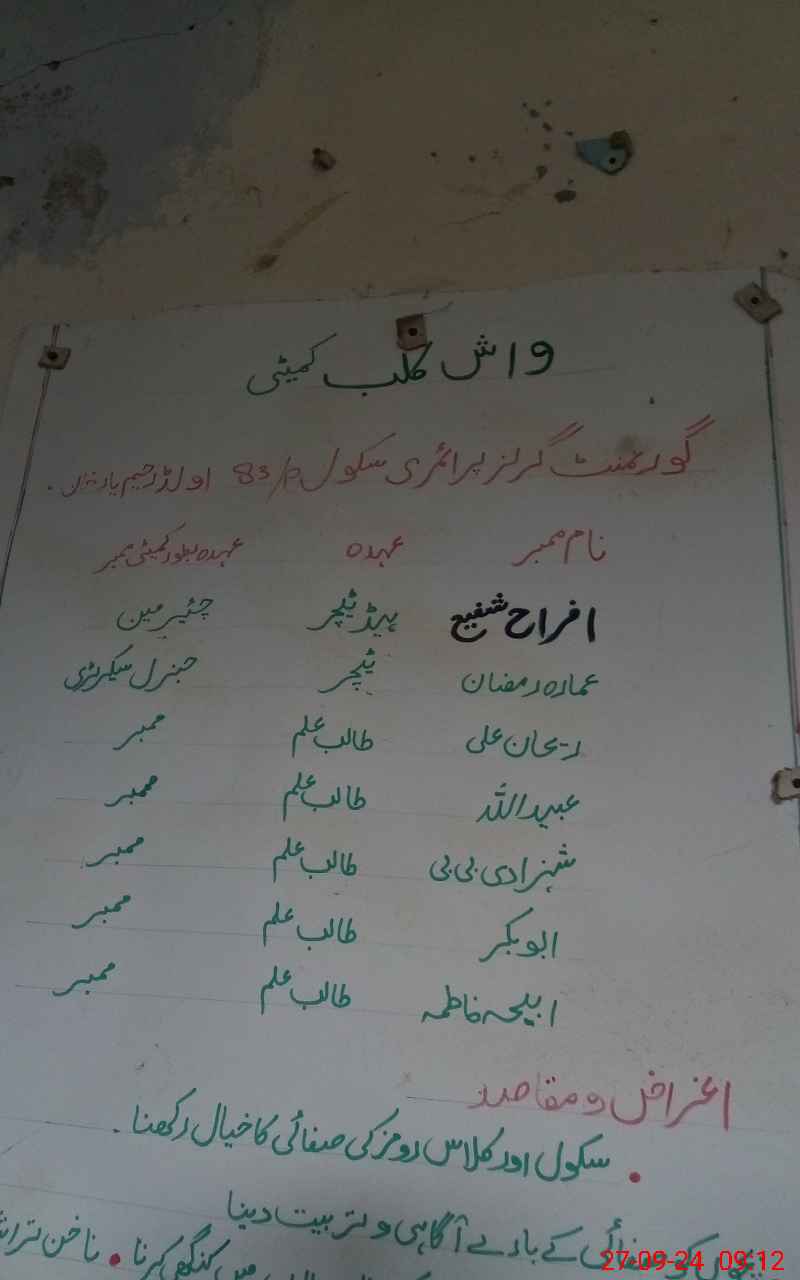 واش کلب کمیٹی
گورنمنٹ گرلز پرائمری سکول 83/P اولڈ رحیم یار خان.
نام ممبر عہدہ عہدہ بطور کمیٹی ممبر
افراح شفیع ہیڈ ٹیچر چئیرمین
عمارہ رمضان ٹیچر جنرل سیکرٹری
ریحان علی طالب علم ممبر
عبیداللہ طالب علم ممبر
شہزادی بی بی طالب علم ممبر
ابوبکر طالب علم ممبر
ابیحہ فاطمہ طالب علم ممبر
اغراض و مقاصد
• سکول اور کلاس رومز کی صفائی کا خیال رکھنا.
کو صفائی کے بارے آگاہی و تربیت دینا
میں کنگھی کرنا • ناخن
27-09-24 09:12